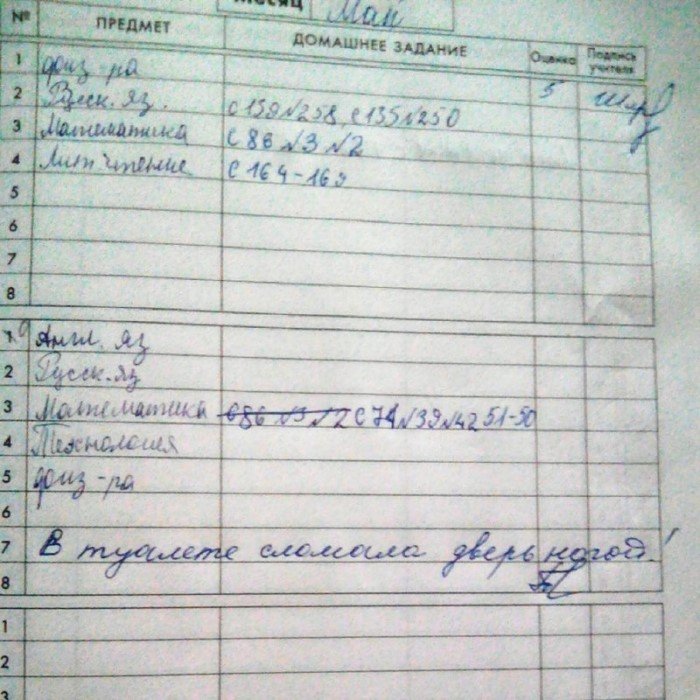 МЕСЯЦ Май
№ ПРЕДМЕТ ДОМАШНЕЕ ЗАДАНИЕ Оценка Подпись учителя
1 физ-ра
2 Русск. яз. с 159 №258, с 135 №250 5
3 Математика с 86 №3 №2
4 Лит. чтение с 164-169
5
6
7
8
1 Англ. яз
2 Русск. яз
3 Математика с86 №3 №2 с 74 №39 №42 51-50
4 Технология
5 физ-ра
6
7 В туалете сломала дверь ногой!
8
1
2
3